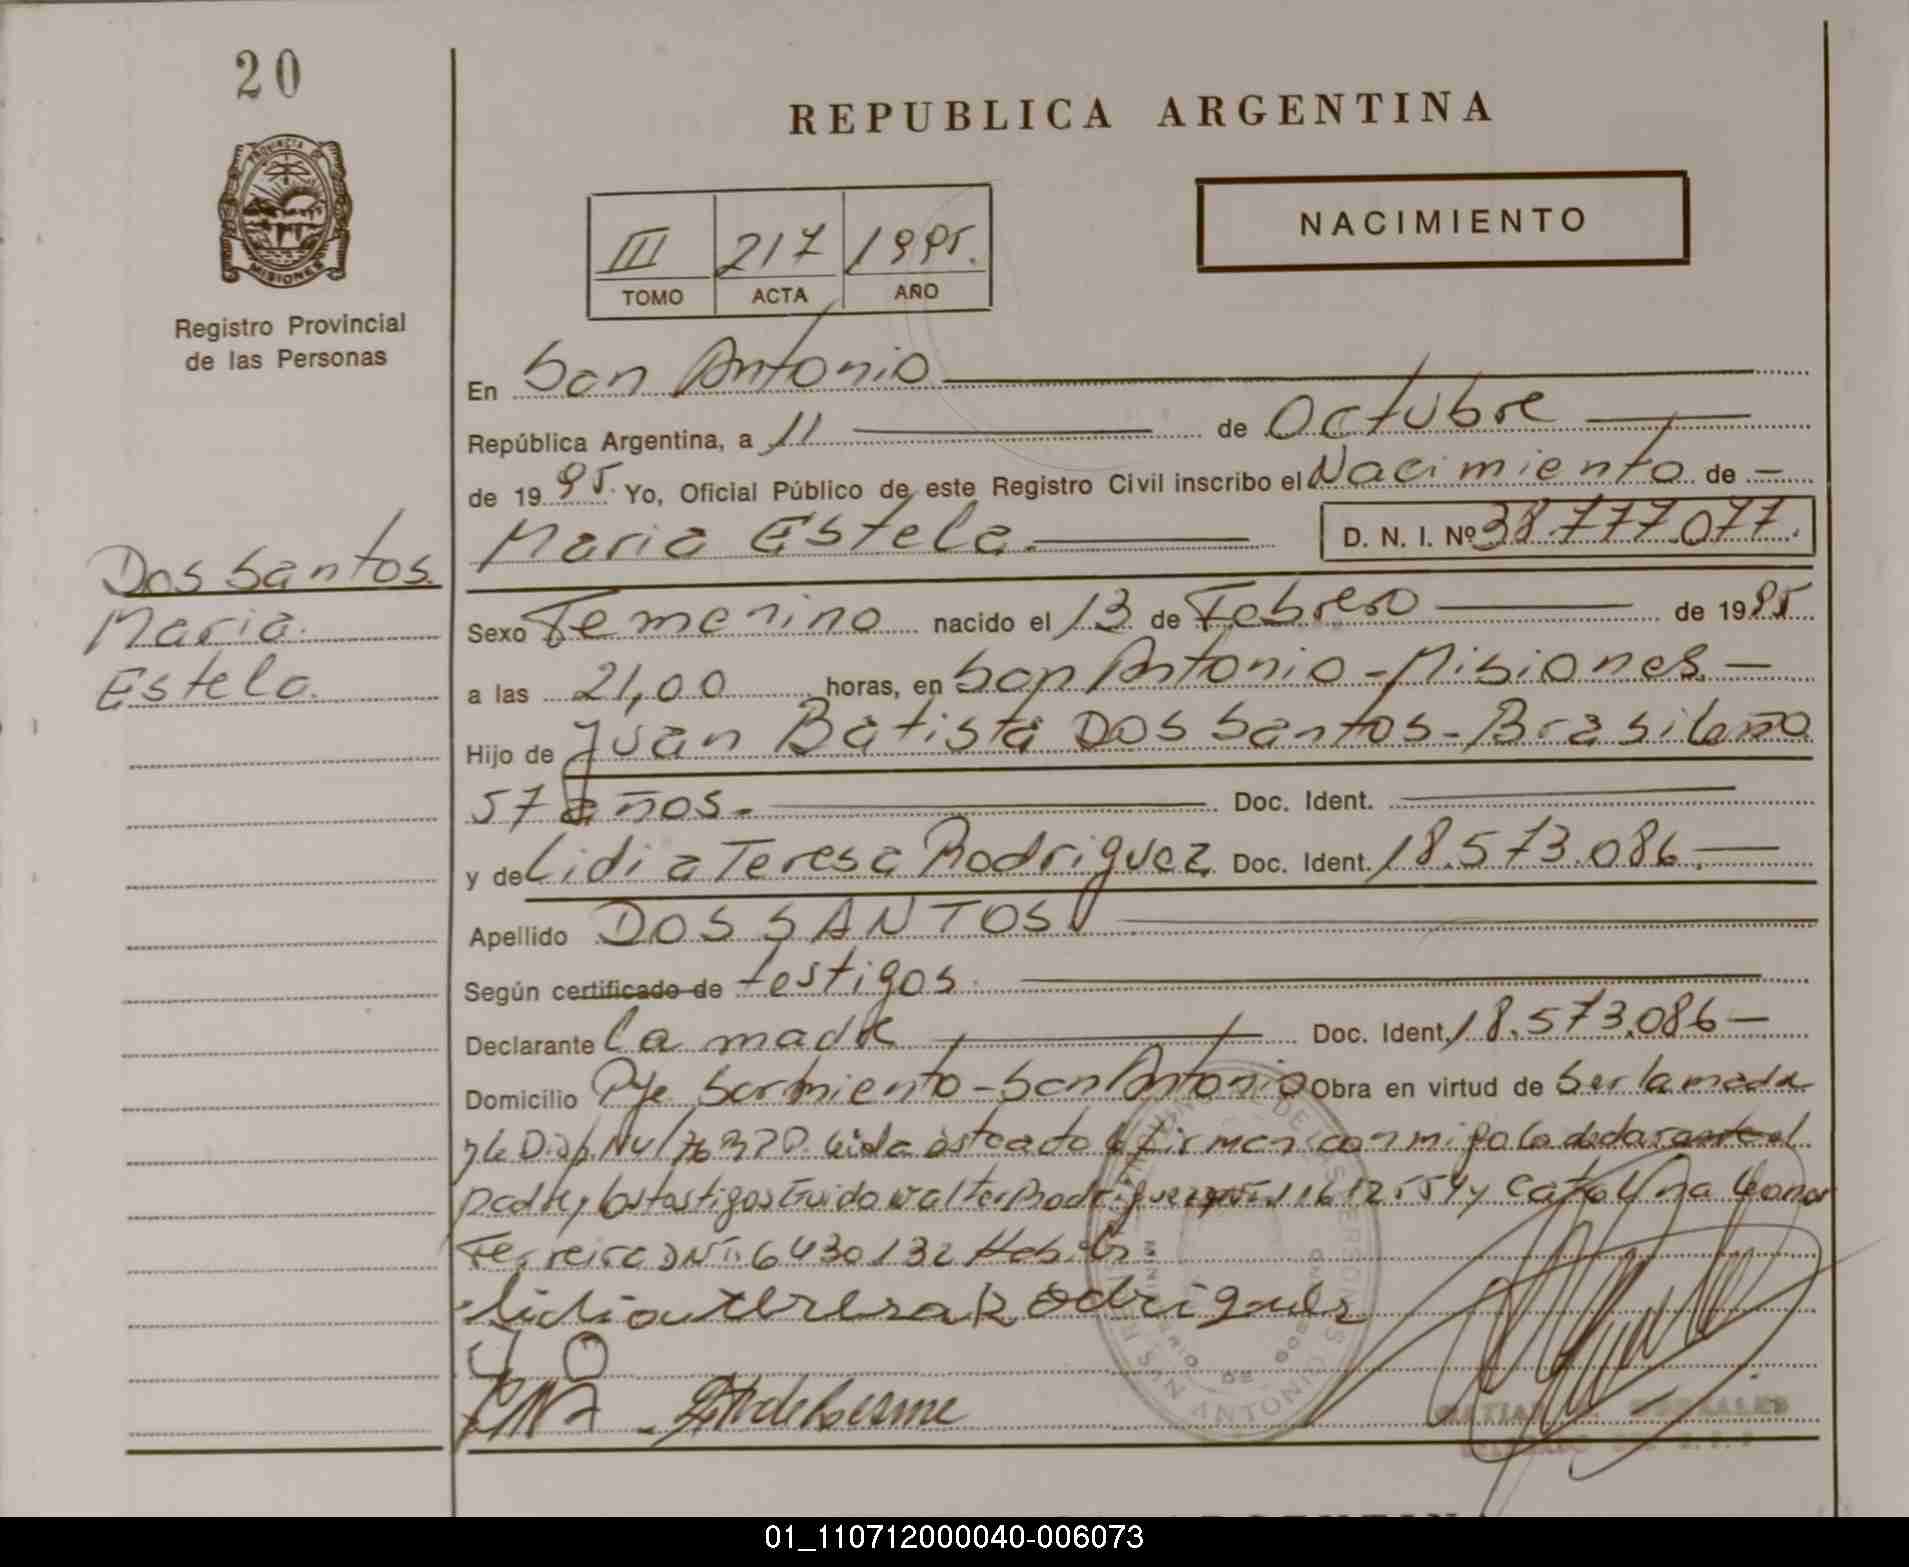 20
REPUBLICA ARGENTINA
PROVINCIA DE
MISIONES
NACIMIENTO
III 217 1995.
TOMO ACTA AÑO
Registro Provincial
de las Personas
En San Antonio
República Argentina, a 11 de Octubre
de 1995. Yo, Oficial Público de este Registro Civil inscribo el Nacimiento de
Maria Estela. D. N. I. Nº 38.777.077.
Dos Santos.
Maria.
Estela.
Sexo Femenino nacido el 13 de Febrero de 1995
a las 21,00 horas, en San Antonio - Misiones.
Hijo de Juan Batista Dos Santos - Brasileño
57 años. Doc. Ident.
y de Lidia Teresa Rodriguez Doc. Ident. 18.573.086.
Apellido DOS SANTOS
Según certificado de testigos.
Declarante La madre Doc. Ident. 18.573.086
Domicilio Pje Sarmiento - San Antonio Obra en virtud de Ser la madre
Leida firman conmigo la declarante el
padre y los testigos Guido Walter Rodriguez y
Ferreira DNI. 6430132
Lidia teresa Rodriguez
SAN ANTONIO
01_110712000040-006073